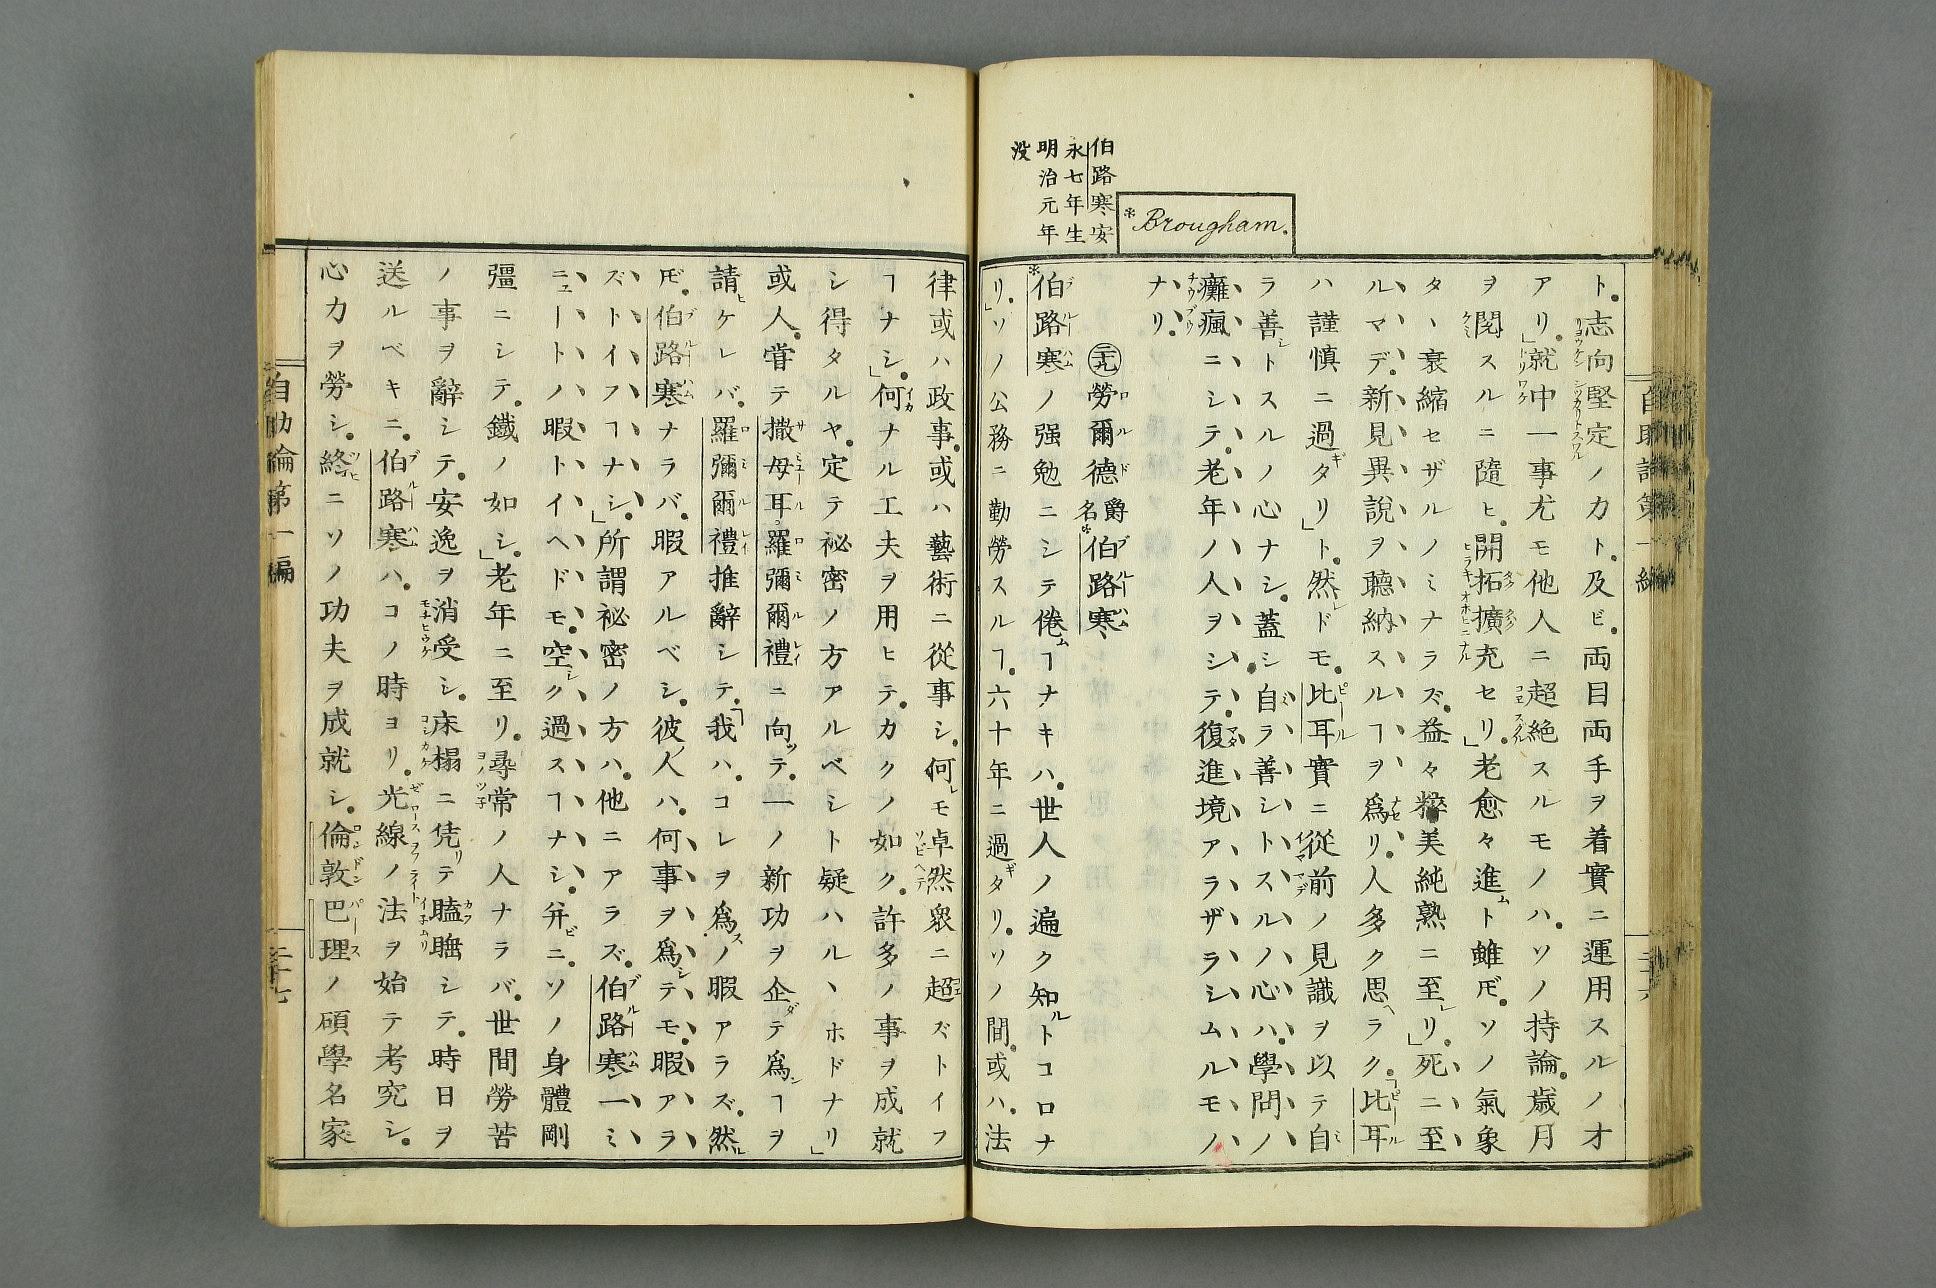 伯路寒安
永七年生
明治元年
没
*Brougham.
ト。志向堅定ノカト。及ビ。両目両手ヲ着實ニ運用スルノオ
アリ。」就中一事尤モ他人ニ超絶スルモノハ。ソノ持論。歳月
ヲ閲スルニ隨ヒ。開拓擴充セリ。」老愈々進ムト雖𪜈。ソノ氣象
タヽ衰縮セザルノミナラズ。益々粹美純熟ニ至レリ。」死ニ至
ルマデ。新見異說ヲ聽納スルヿヲ爲リ。人多ク思ヘラク。「比耳
ハ謹慎ニ過ギタリ」ト。然レドモ。比耳實ニ從前ノ見識ヲ以テ自ミ
ラ善シトスルノ心ナシ。蓋シ自ミラ善シトスルノ心ハ。學問ノ
癱瘋ニシテ。老年ノ人ヲシテ。復進境アラザラシムルモノ
ナリ。
㊴勞爾德爵名*伯路寒
*伯路寒ノ强勉ニシテ倦ムヿナキハ。世人ノ遍ク知ルトコロナ
リ。」ソノ公務ニ勤勞スルヿ。六十年ニ過ギタリ。ソノ間。或ハ。法
律或ハ政事。或ハ藝術ニ從事シ。何レモ卓然衆ニ超エズトイフ
ヿナシ。」何ナル工夫ヲ用ヒテ。カクノ如ク。許多ノ事ヲ成就
シ得タルヤ。定テ祕密ノ方アルベシト疑ハルヽホドナリ」
或人。甞テ撒母耳羅彌爾禮ニ向ッテ。一ノ新功ヲ企ダテ爲シヿヲ
請ヒケレバ。羅彌爾禮推辭シテ。「我ハ。コレヲ爲スノ暇アラズ。然レ」
𪜈。伯路寒ナラバ。暇アルベシ。彼ノ人ハ。何事ヲ爲シテモ。暇アラ
ズトイフヿナシ。」所謂祕密ノ方ハ。他ニアラズ。伯路寒一ミ
ニュートノ暇トイヘドモ。空シク過スヿナシ。并ビニ。ソノ身體剛
彊ニシテ。鐵ノ如シ。」老年ニ至リ。尋常ノ人ナラバ。世間勞苦
ノ事ヲ辭シテ。安逸ヲ消受シ。床榻ニ凭リテ瞌睡シテ。時日ヲ
送ルベキニ。伯路寒ハ。コノ時ヨリ。光線ノ法ヲ始テ考究シ。
心力ヲ勞シ。終ニソノ功夫ヲ成就シ。倫敦巴理ノ碩學名家
自助論第一編
二十七